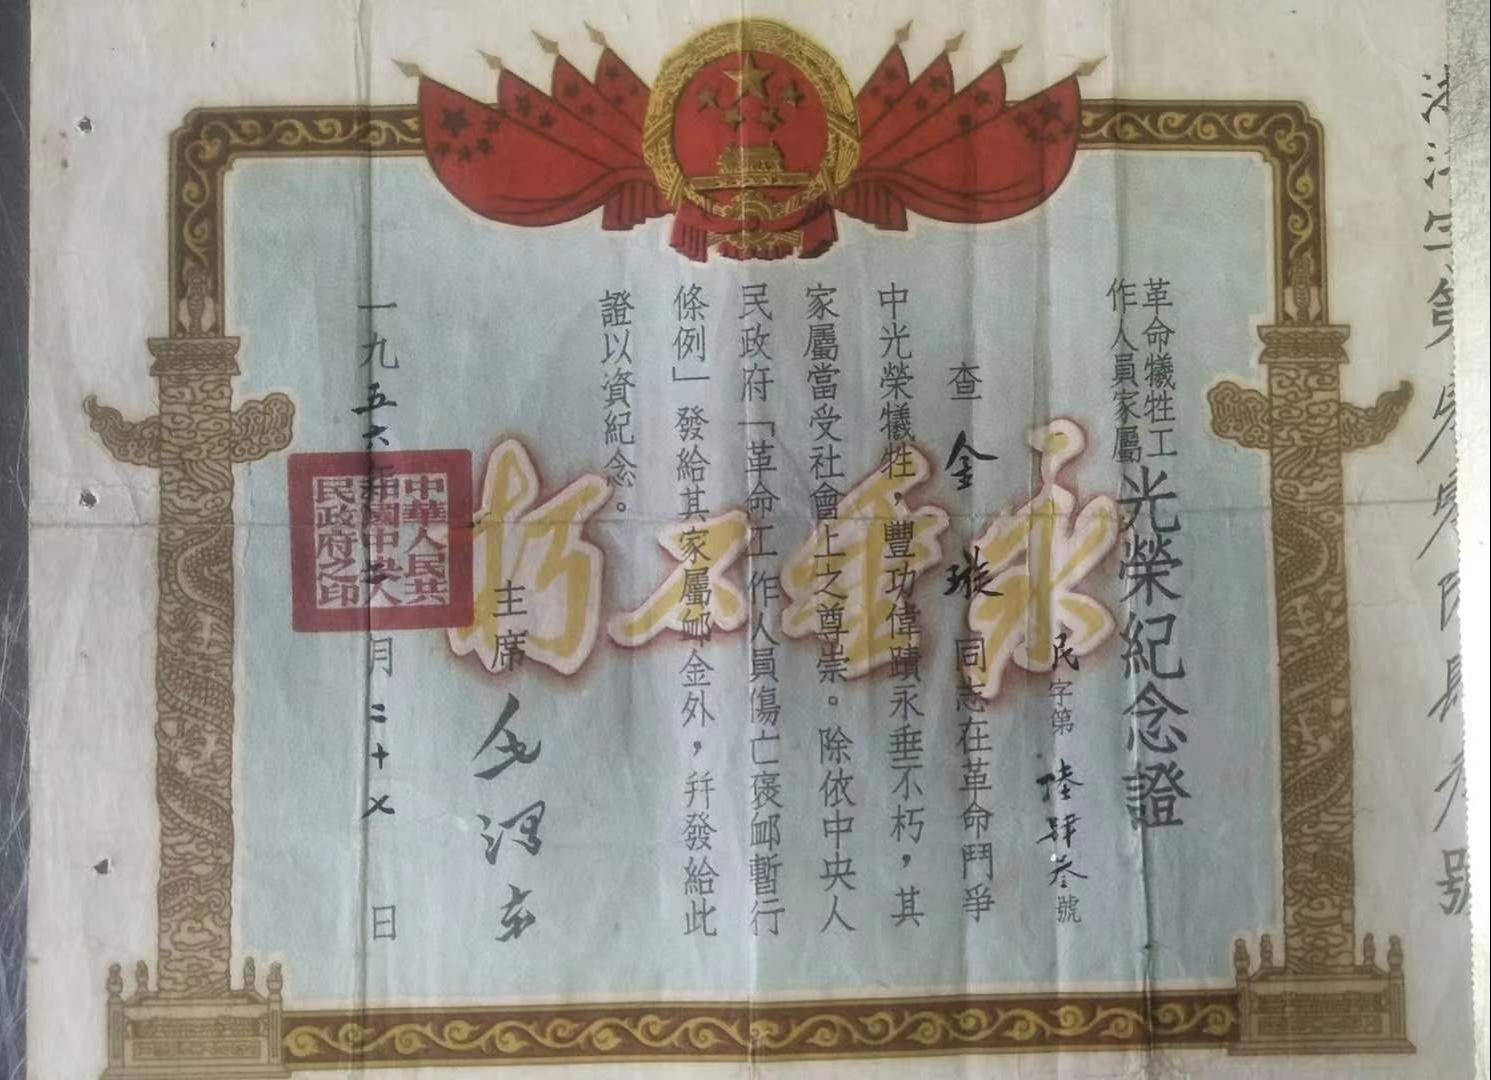 革命犧牲工
作人員家屬
光榮紀念證
民字第陸肆叁號
查金璇同志在革命鬥爭
中光榮犧牲，豐功偉蹟永垂不朽，其
家屬當受社會上之尊崇。除依中央人
民政府「革命工作人員傷亡褒卹暫行
條例」發給其家屬卹金外，幷發給此
證以資紀念。
主席毛澤东
一九五六年二月二十七日
永垂不朽
中華人民共
和國中央人
民政府之印